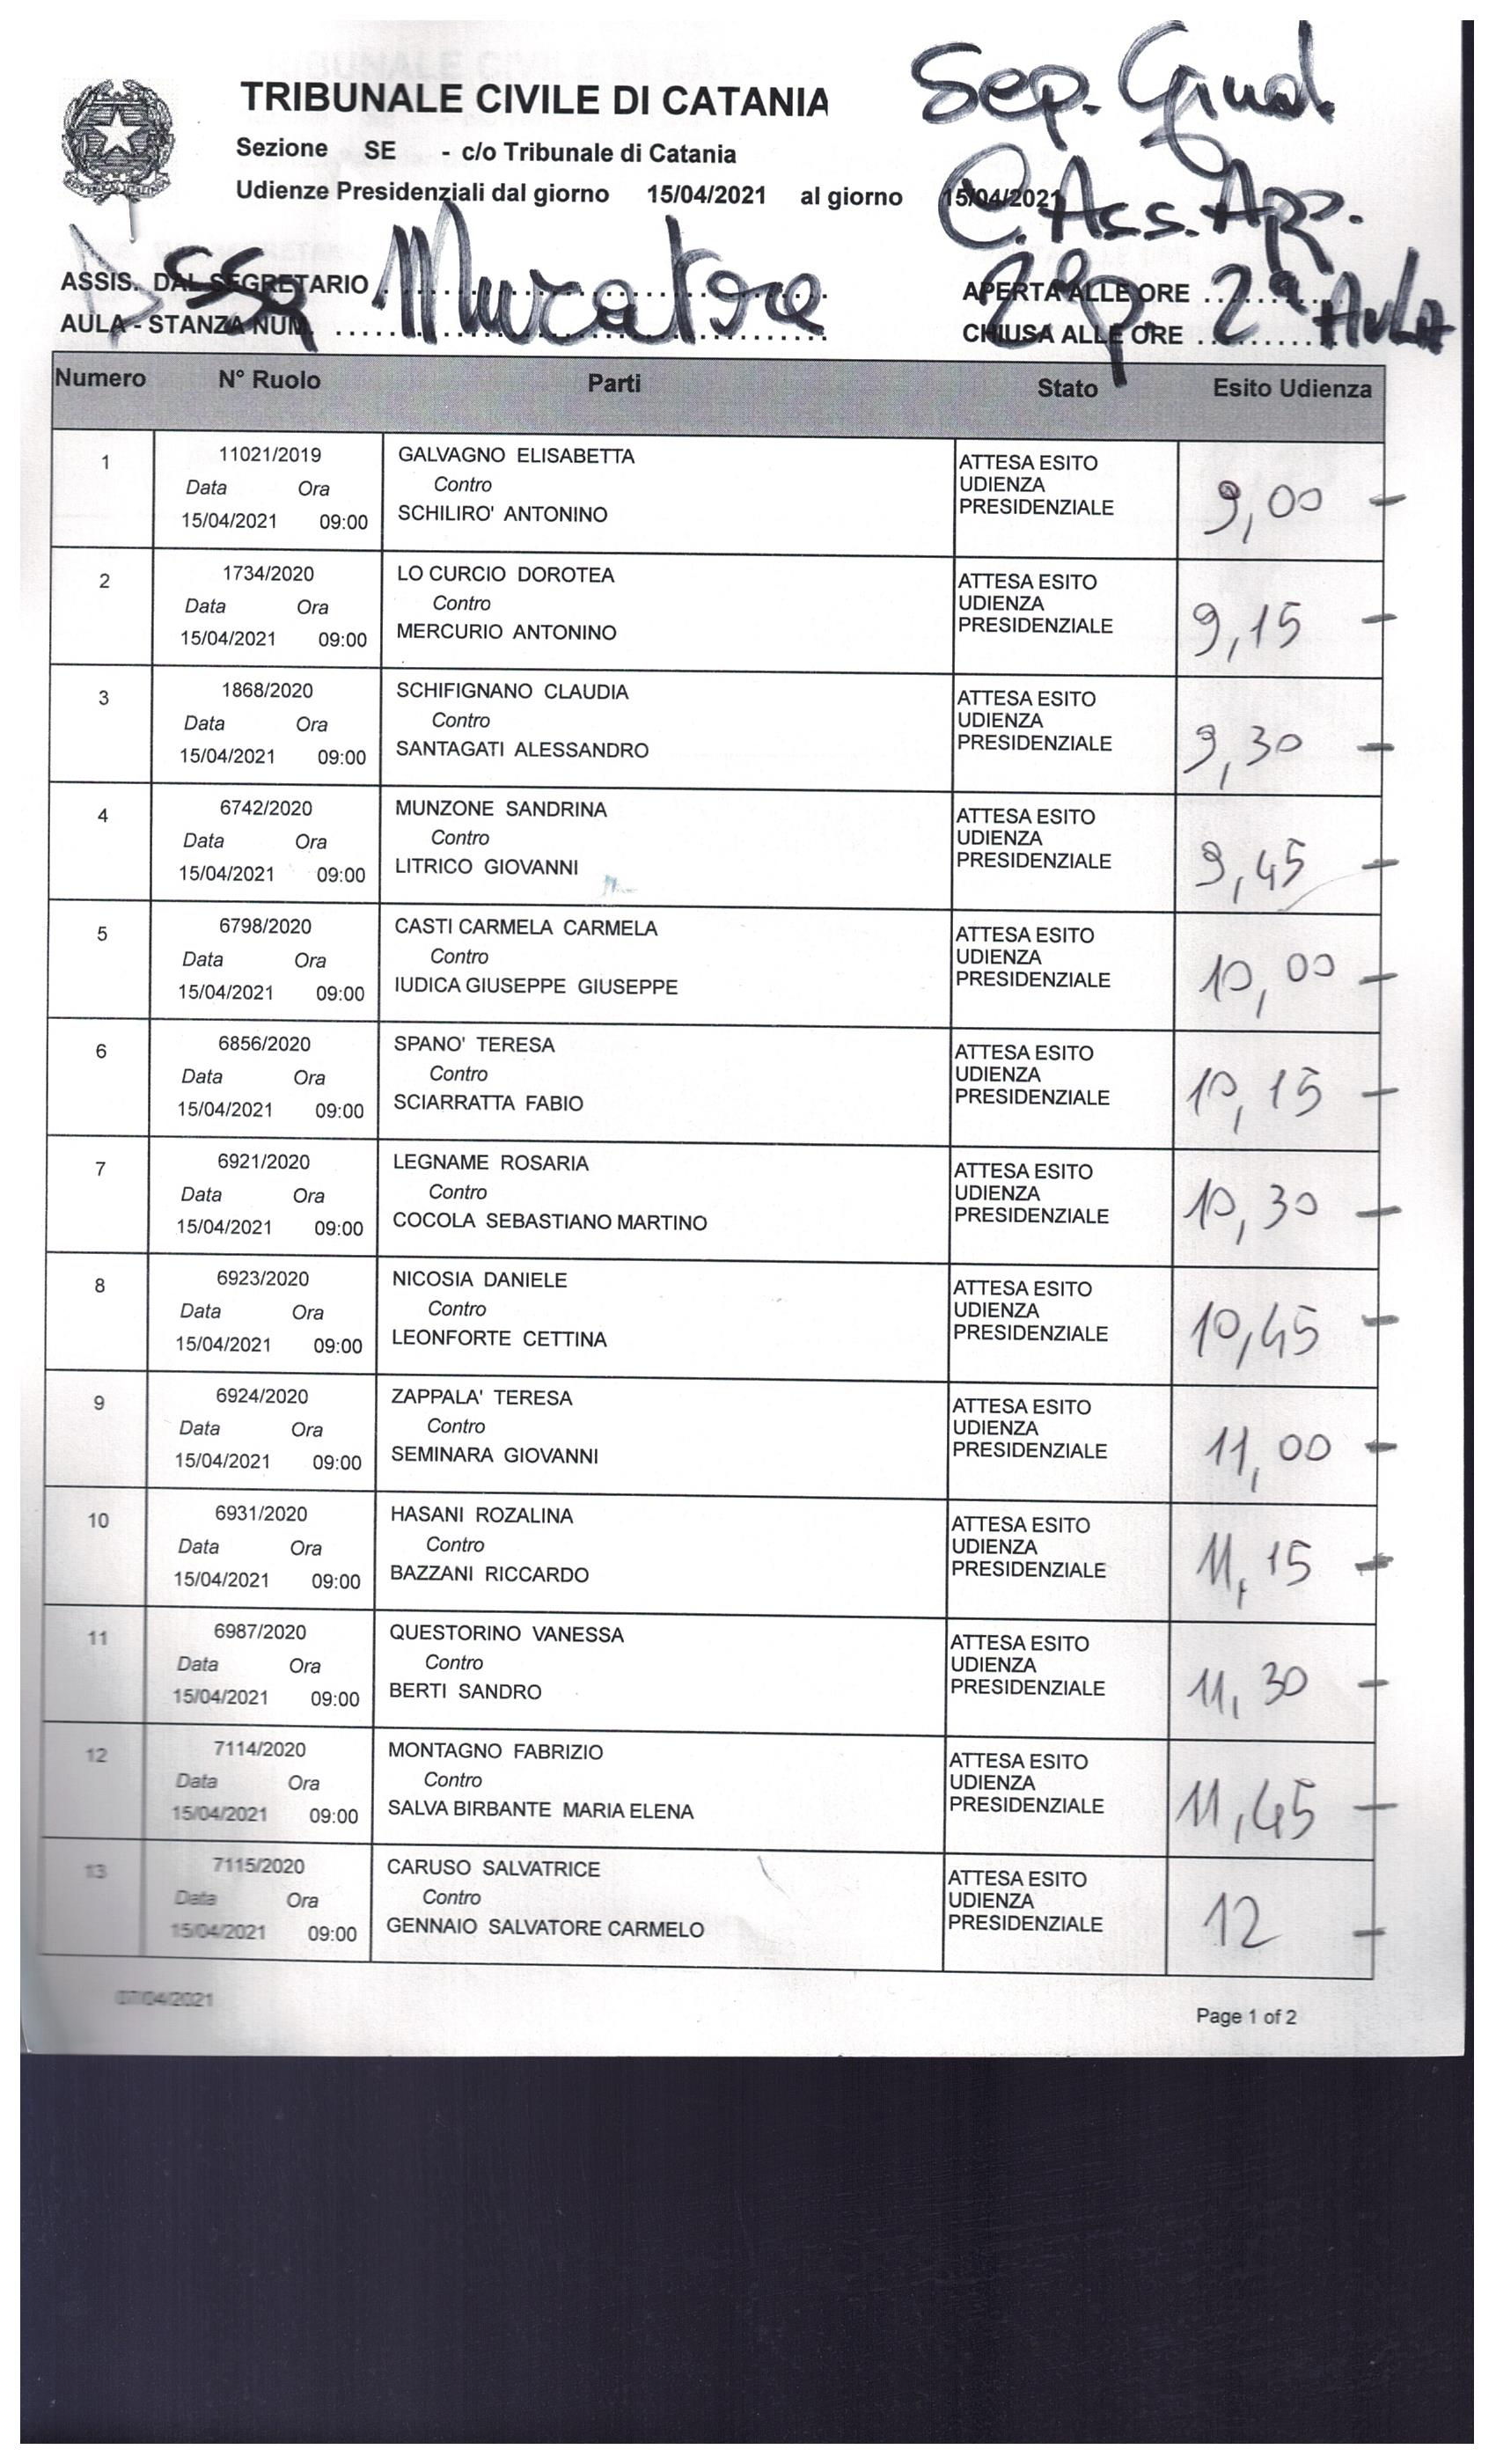 TRIBUNALE CIVILE DI CATANIA
Sep. Giud.
Sezione SE - c/o Tribunale di Catania
Udienze Presidenziali dal giorno 15/04/2021 al giorno 15/04/2021
C. Ass. App.
ASSIS. DAL SEGRETARIO
D.ssa Muratore
APERTA ALLE ORE
2° p. 2ª AulA
AULA - STANZA NUM.
CHIUSA ALLE ORE
Numero N° Ruolo Parti Stato Esito Udienza
1 11021/2019 GALVAGNO ELISABETTA ATTESA ESITO
Data Ora Contro UDIENZA
15/04/2021 09:00 SCHILIRO' ANTONINO PRESIDENZIALE 9,00 -
2 1734/2020 LO CURCIO DOROTEA ATTESA ESITO
Data Ora Contro UDIENZA
15/04/2021 09:00 MERCURIO ANTONINO PRESIDENZIALE 9,15 -
3 1868/2020 SCHIFIGNANO CLAUDIA ATTESA ESITO
Data Ora Contro UDIENZA
15/04/2021 09:00 SANTAGATI ALESSANDRO PRESIDENZIALE 9,30 -
4 6742/2020 MUNZONE SANDRINA ATTESA ESITO
Data Ora Contro UDIENZA
15/04/2021 09:00 LITRICO GIOVANNI PRESIDENZIALE 9,45 -
5 6798/2020 CASTI CARMELA CARMELA ATTESA ESITO
Data Ora Contro UDIENZA
15/04/2021 09:00 IUDICA GIUSEPPE GIUSEPPE PRESIDENZIALE 10,00 -
6 6856/2020 SPANO' TERESA ATTESA ESITO
Data Ora Contro UDIENZA
15/04/2021 09:00 SCIARRATTA FABIO PRESIDENZIALE 10,15 -
7 6921/2020 LEGNAME ROSARIA ATTESA ESITO
Data Ora Contro UDIENZA
15/04/2021 09:00 COCOLA SEBASTIANO MARTINO PRESIDENZIALE 10,30 -
8 6923/2020 NICOSIA DANIELE ATTESA ESITO
Data Ora Contro UDIENZA
15/04/2021 09:00 LEONFORTE CETTINA PRESIDENZIALE 10,45 -
9 6924/2020 ZAPPALA' TERESA ATTESA ESITO
Data Ora Contro UDIENZA
15/04/2021 09:00 SEMINARA GIOVANNI PRESIDENZIALE 11,00 -
10 6931/2020 HASANI ROZALINA ATTESA ESITO
Data Ora Contro UDIENZA
15/04/2021 09:00 BAZZANI RICCARDO PRESIDENZIALE 11,15 -
11 6987/2020 QUESTORINO VANESSA ATTESA ESITO
Data Ora Contro UDIENZA
15/04/2021 09:00 BERTI SANDRO PRESIDENZIALE 11,30 -
12 7114/2020 MONTAGNO FABRIZIO ATTESA ESITO
Data Ora Contro UDIENZA
15/04/2021 09:00 SALVA BIRBANTE MARIA ELENA PRESIDENZIALE 11,45 -
13 7115/2020 CARUSO SALVATRICE ATTESA ESITO
Data Ora Contro UDIENZA
15/04/2021 09:00 GENNAIO SALVATORE CARMELO PRESIDENZIALE 12 -
07/04/2021
Page 1 of 2